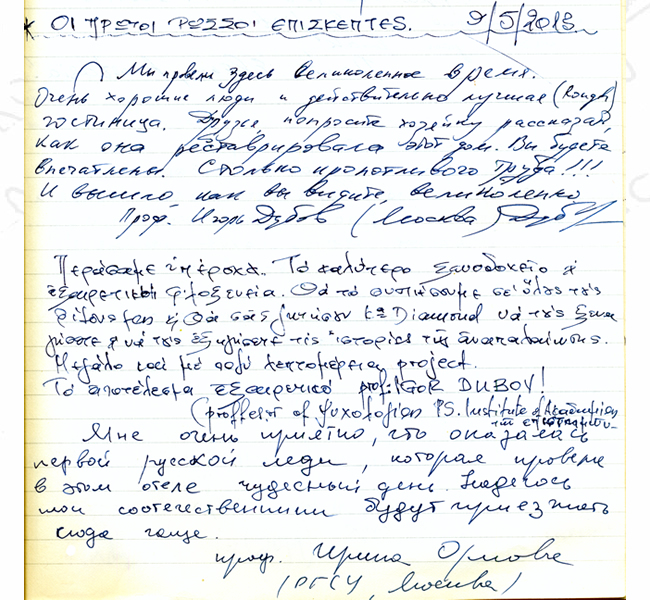 * ΟΙ ΠΡΩΤΟΙ ΡΩΣΣΟΙ ΕΠΙΣΚΕΠΤΕΣ. 9/5/2013
Мы провели здесь великолепное время.
Очень хорошие люди и действительно лучшая
гостиница. Друзья, попросите хозяйку рассказать,
как она реставрировала этот дом. Вы будете
впечатлены. Столько кропотливого труда!!!
И вышло, как вы видите, великолепно
Проф. Игорь Дубов (Москва)
Περάσαμε υπέροχα. Το καλύτερο ξενοδοχείο &
εξαιρετική φιλοξενία. Θα το συστήσουμε σε όλους τους
φίλους μας & θα σας ζητήσουν Diamond να τους
& να τους εξηγήσετε τις ιστορίες της
Μεγάλο και με πολύ λεπτομέρεια project.
Το αποτέλεσμα εξαιρετικό prof. IGOR DUBOV!
( of PS. Institute of
Мне очень приятно, что оказалась
первой русской леди, которая провела
в этом отеле чудесный день. Надеюсь
мои соотечественники будут приезжать
сюда чаще.
проф. Ирина Орлова
(РГСУ, Москва)